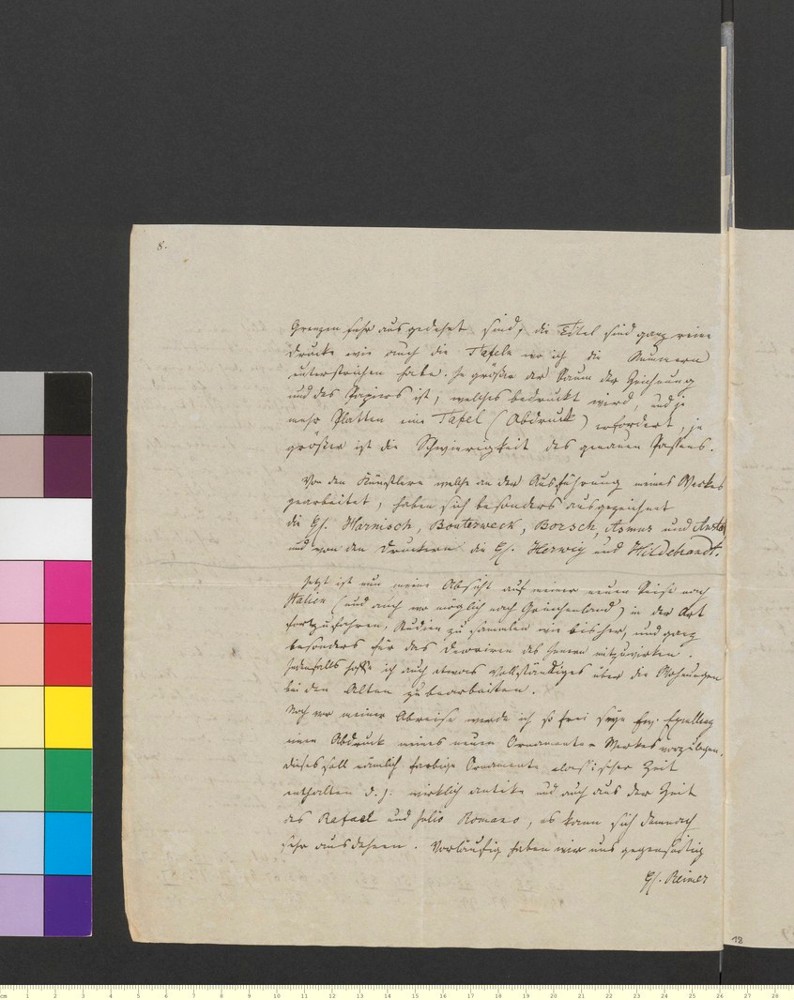 8.
Grenzen sehr ausgedehnt sind, die Titel sind ganz reine
Drucke wie auch die Tafeln wo ich die Nummern
unterstrichen habe. Je größer der Raum der Zeichnung
und des Papiers ist, welches bedruckt wird, und je
mehr Platten eine Tafel (Abdruck) erfordert, je
größer ist die Schwierigkeit des genauen Passens.
Von den Künstlern welche an der Ausführung meines Werkes
gearbeitet, haben sich besonders ausgezeichnet
die HH. Harnisch, Bouterweck, Borsch, Asmus und
und von den Druckern die HH. Herwig und Hildebrandt.
Jetzt ist nun meine Absicht auf einer neuen Reise nach
Italien (und auch wo möglich nach Griechenland) in der Art
fortzufahren, Studien zu sammeln wie bisher, und ganz
besonders für das Decoriren des Innern mitzuwirken.
Jedenfalls hoffe ich auch etwas Vollständiges über die Wohnungen
bei den Alten zu bearbeiten.
Noch vor meiner Abreise werde ich so frei seyn Ew. Excellenz
einen Abdruck meines neuen Ornamenten-Werkes vorzulegen,
dieses soll nämlich farbige Ornamente classischer Zeit
enthalten d. h. wirklich antike und auch aus der Zeit
des Rafael und Julio Romano, es kann sich demnach
sehr ausdehnen. Vorläufig haben wir uns gegenseitig
H. Reimer
12